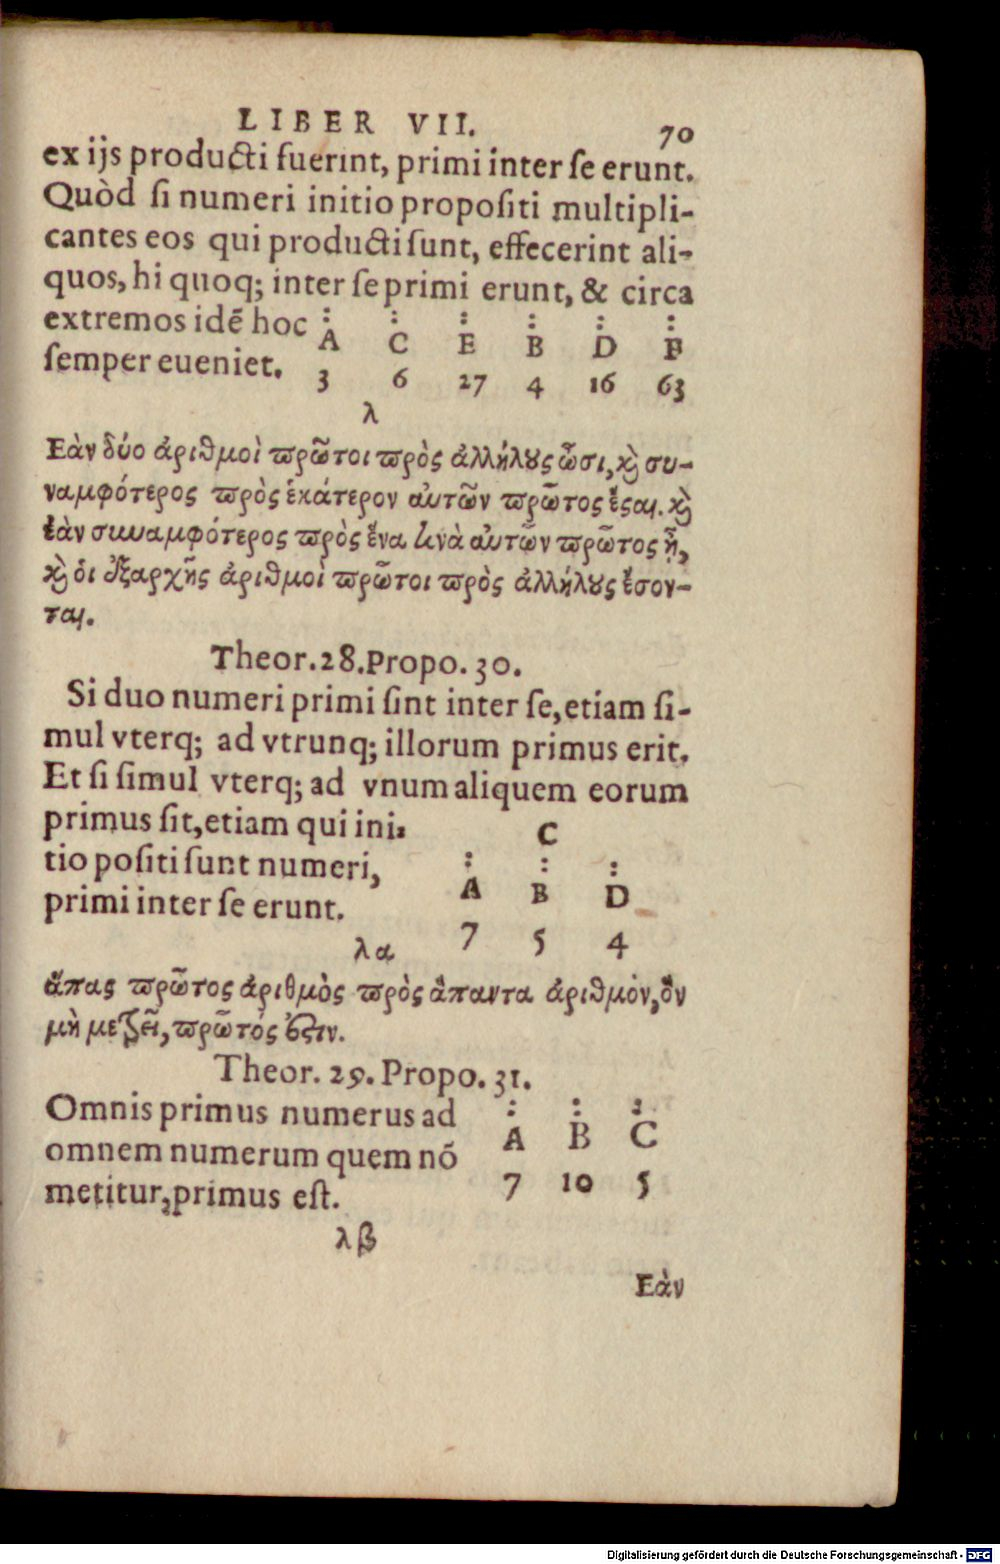 LIBER VII. 70
ex ijs producti fuerint, primi inter se erunt.
Quòd si numeri initio propositi multipli-
cantes eos qui producti sunt, effecerint ali-
quos, hi quoq; inter se primi erunt, & circa
extremos idẽ hoc : : : : : :
semper eueniet. A C E B D F
3 6 27 4 16 63
λ
Εὰν δύο ἀριθμοὶ πρῶτοι πρὸς ἀλλήλους ὦσι, καὶ συ-
ναμφότερος πρὸς ἑκάτερον αὐτῶν πρῶτος ἔσαι. καὶ
ἐὰν συναμφότερος πρὸς ἕνα τινὰ αὐτῶν πρῶτος ᾖ,
καὶ οἱ ἐξαρχῆς ἀριθμοὶ πρῶτοι πρὸς ἀλλήλους ἔσον-
ται.
Theor. 28. Propo. 30.
Si duo numeri primi sint inter se, etiam si-
mul vterq; ad vtrunq; illorum primus erit.
Et si simul vterq; ad vnum aliquem eorum
primus sit, etiam qui ini-
tio positi sunt numeri,
primi inter se erunt.
C
: : :
A B D
7 5 4
λα
ἅπας πρῶτος ἀριθμὸς πρὸς ἅπαντα ἀριθμόν, ὃν
μὴ μετρεῖ, πρῶτός ἐστιν.
Theor. 29. Propo. 31.
Omnis primus numerus ad
omnem numerum quem nõ
metitur, primus est.
: : :
A B C
7 10 5
λβ
Εὰν
Digitalisierung gefördert durch die Deutsche Forschungsgemeinschaft - DFG